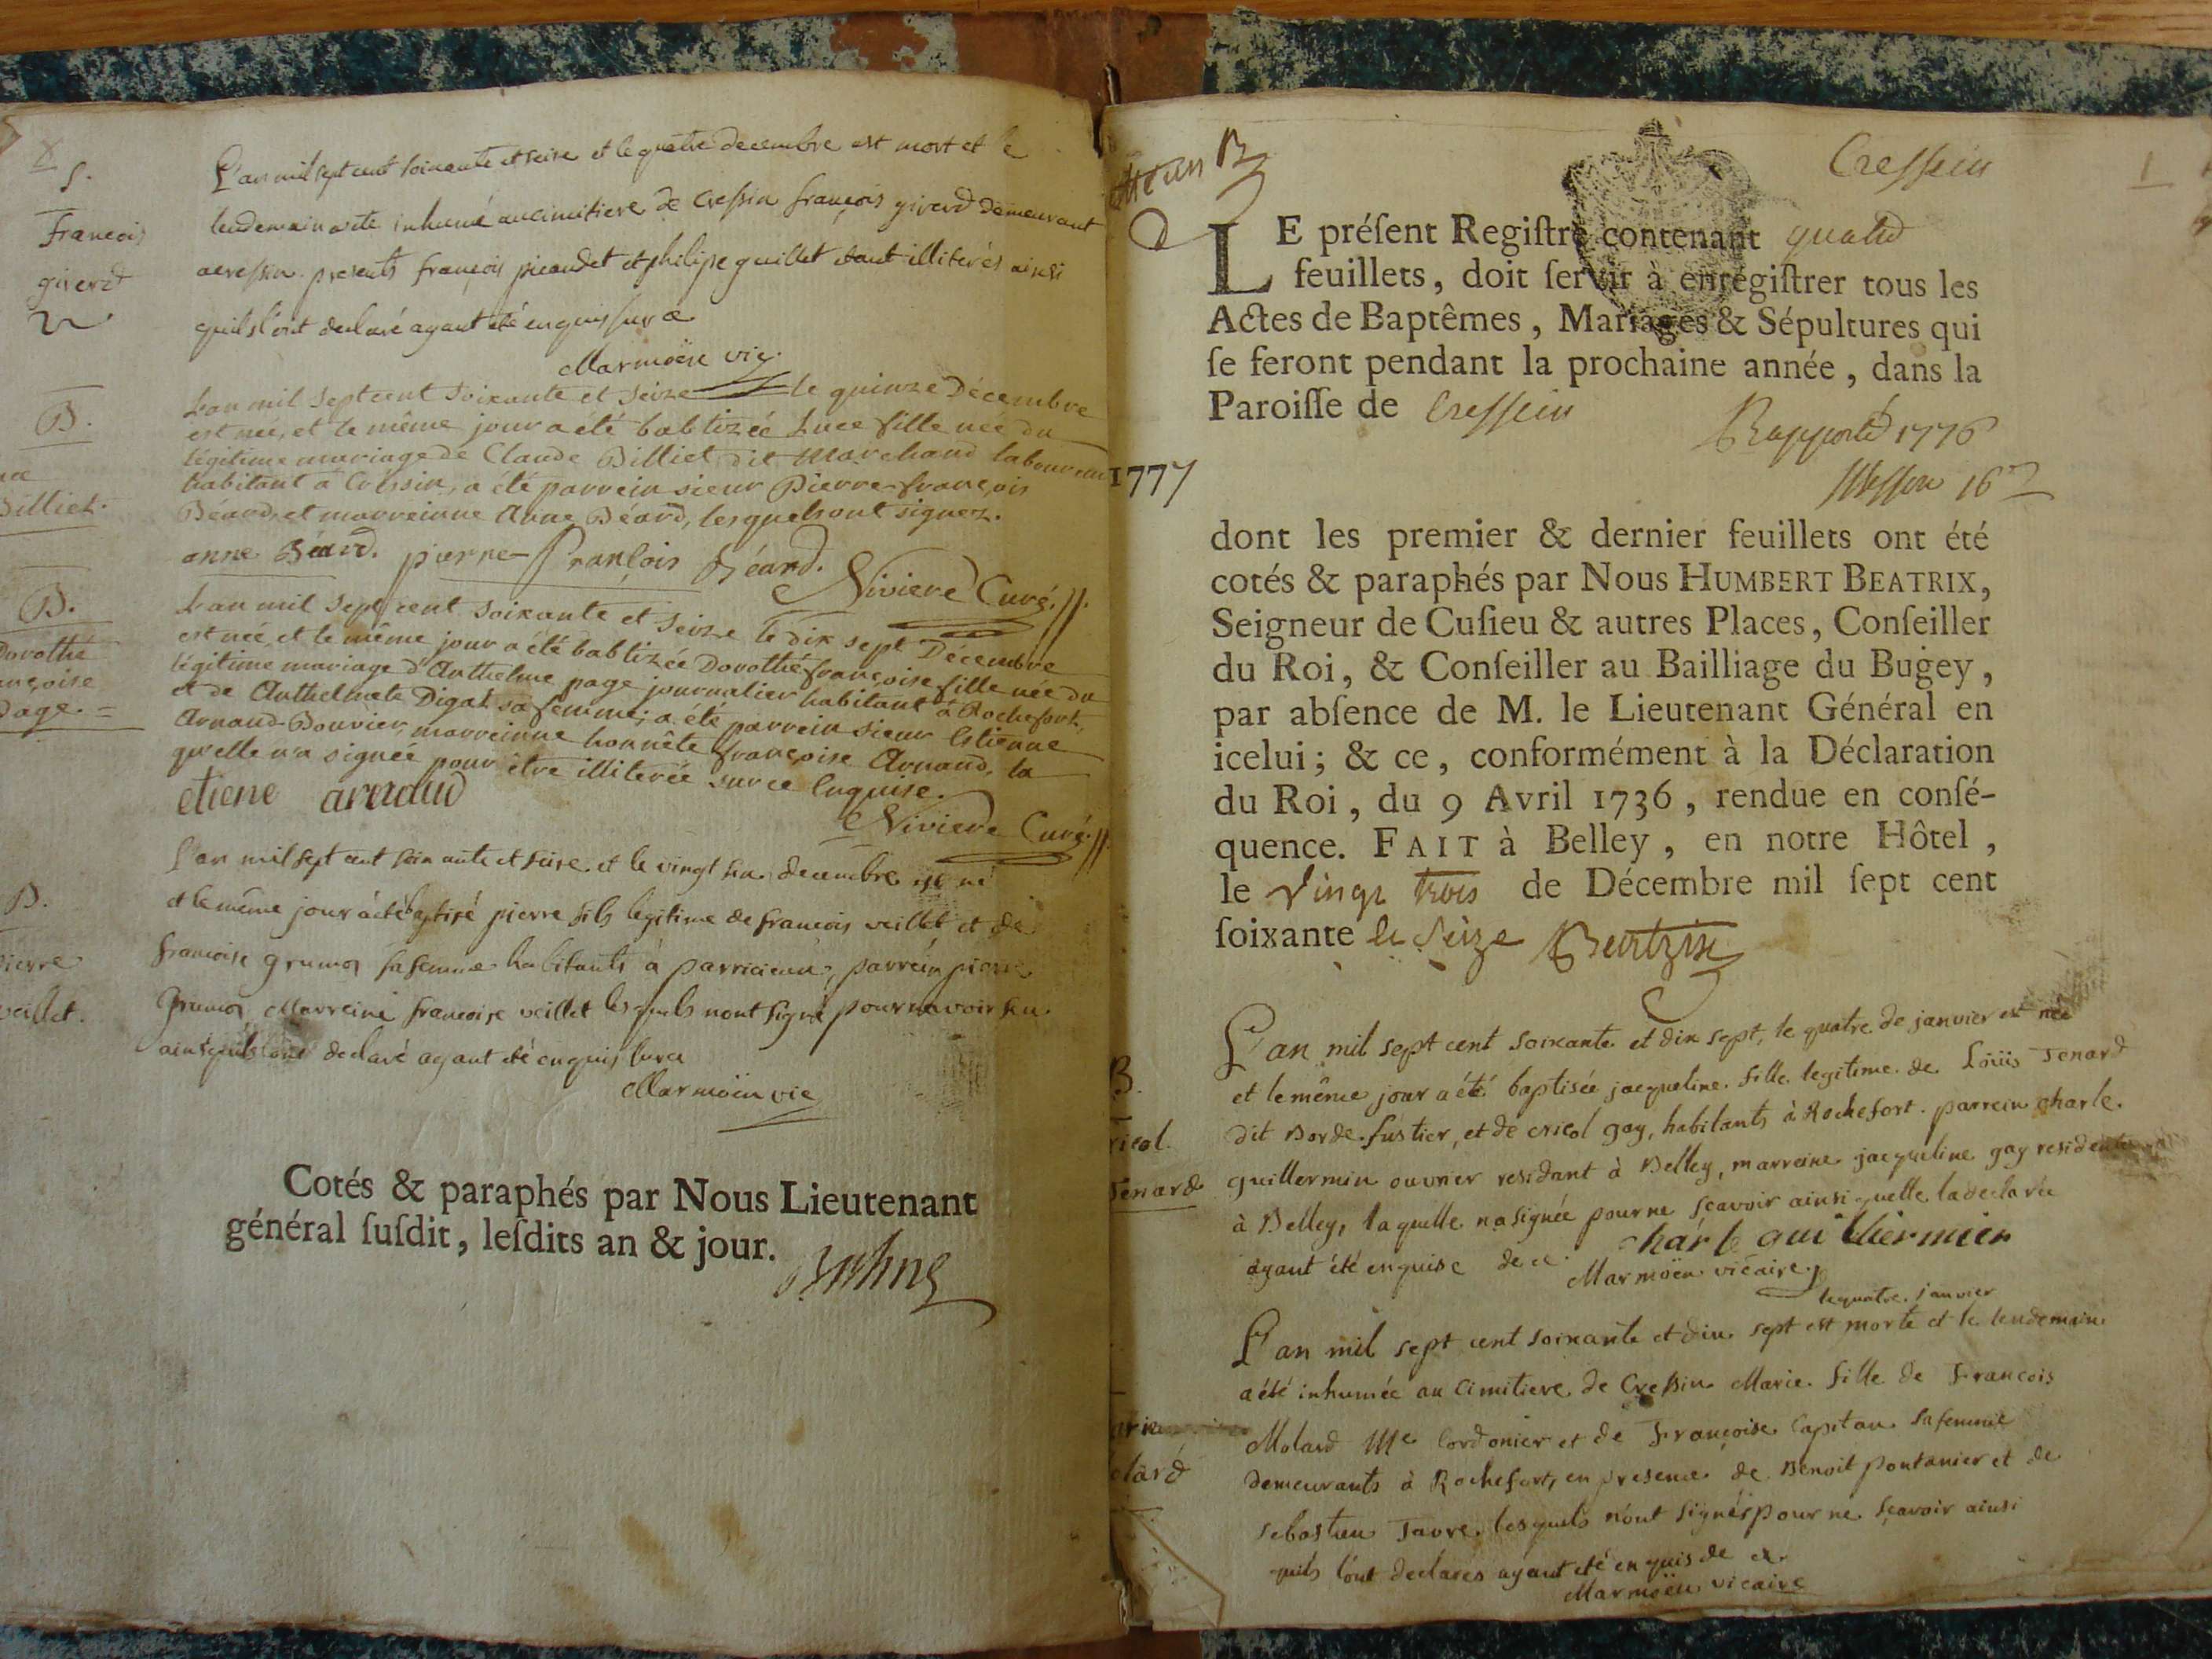 S.
François
giverd
L'an mil sept cent soixante et seise et le quatre decembre est mort et le
lendemain a été inhumé au cimitiere de Cressin françois giverd demeurant
a cressin presents françois picaudet et philipe guillet étant illiterés ainsi
qu'ils l'ont declaré ayant été enquis sur ce
Marmoën vic.
B.
Billiet.
L'an mil sept cent soixante et seize le quinze Décembre
est née, et le même jour a été babtizée Luce fille née du
légitime mariage de Claude Billiet dit Marchand laboureur
habitant à Créssin, a été parrein sieur Pierre-françois
Béard, et marreinne Anne Béard, lesquels ont signez.
anne Béard. pierre-François Béard.
Niviere Curé.
B.
Dorothé
françoise
page.
L'an mil sept cent soixante et seize le dix sept Décembre
est née, et le même jour a été babtizée Dorothé françoise fille née du
légitime mariage d'Anthelme page journalier habitant à Rochefort,
et de Anthelmete Digat sa femme; a été parrein sieur Estienne
Arnaud-Bouvier, marreinne honnête françoise Arnaud, la
qu'elle n'a signée pour être illiterée sur ce enquise.
etiene arnaud
Niviere Curé.
B.
pierre
veillet.
L'an mil sept cent soixante et seise et le vingt decembre est né
et le même jour à été baptisé pierre fils legitime de françois veillet et de
françoise grumo sa femme habitants à parricieu, parrein pierre
grumo, Marreine françoise veillet lesquels n'ont signé pour n'avoir su
ainsi qu'ils l'ont declaré ayant été enquis sur ce
Marmoën vic
Cotés & paraphés par Nous Lieutenant
général ſuſdit, leſdits an & jour.
Cressin
LE préſent Regiſtre contenant quatre
feuillets, doit ſervir à enrégiſtrer tous les
Actes de Baptêmes, Mariages & Sépultures qui
ſe feront pendant la prochaine année, dans la
Paroiſſe de Cressein
Rapporté 1776
1777
dont les premier & dernier feuillets ont été
cotés & paraphés par Nous HUMBERT BEATRIX,
Seigneur de Cuſieu & autres Places, Conſeiller
du Roi, & Conſeiller au Bailliage du Bugey,
par abſence de M. le Lieutenant Général en
icelui; & ce, conformément à la Déclaration
du Roi, du 9 Avril 1736, rendue en conſé-
quence. FAIT à Belley, en notre Hôtel,
le vingt trois de Décembre mil ſept cent
ſoixante et seize Beatrix
B.
Tenard
L'an mil sept cent soixante et dix sept, le quatre de janvier est née
et le même jour a été baptisée jacqueline fille legitime de Loüis Tenard
dit Borde fustier, et de ericol gay, habitants à Rochefort. parrein charle
guillermin ouvrier residant à Belley, marreine jacqueline gay residente
à Belley, laquelle n'a signée pour ne sçavoir ainsi quelle la declarée
ayant été enquise de ce. charle guilliermier
Marmoën vicaire.
le quatre janvier
L'an mil sept cent soixante et dix sept est morte et le lendemain
a été inhumée au cimitiere de Cressin Marie fille de François
Molard Me Cordonier et de Françoise Capitan sa femme
demeurants à Rochefort, en presence de Benoit pontanier et de
sebastien Tavre lesquels n'ont signés pour ne sçavoir ainsi
quils l'ont declarés ayant été enquis de ce.
Marmoën vicaire